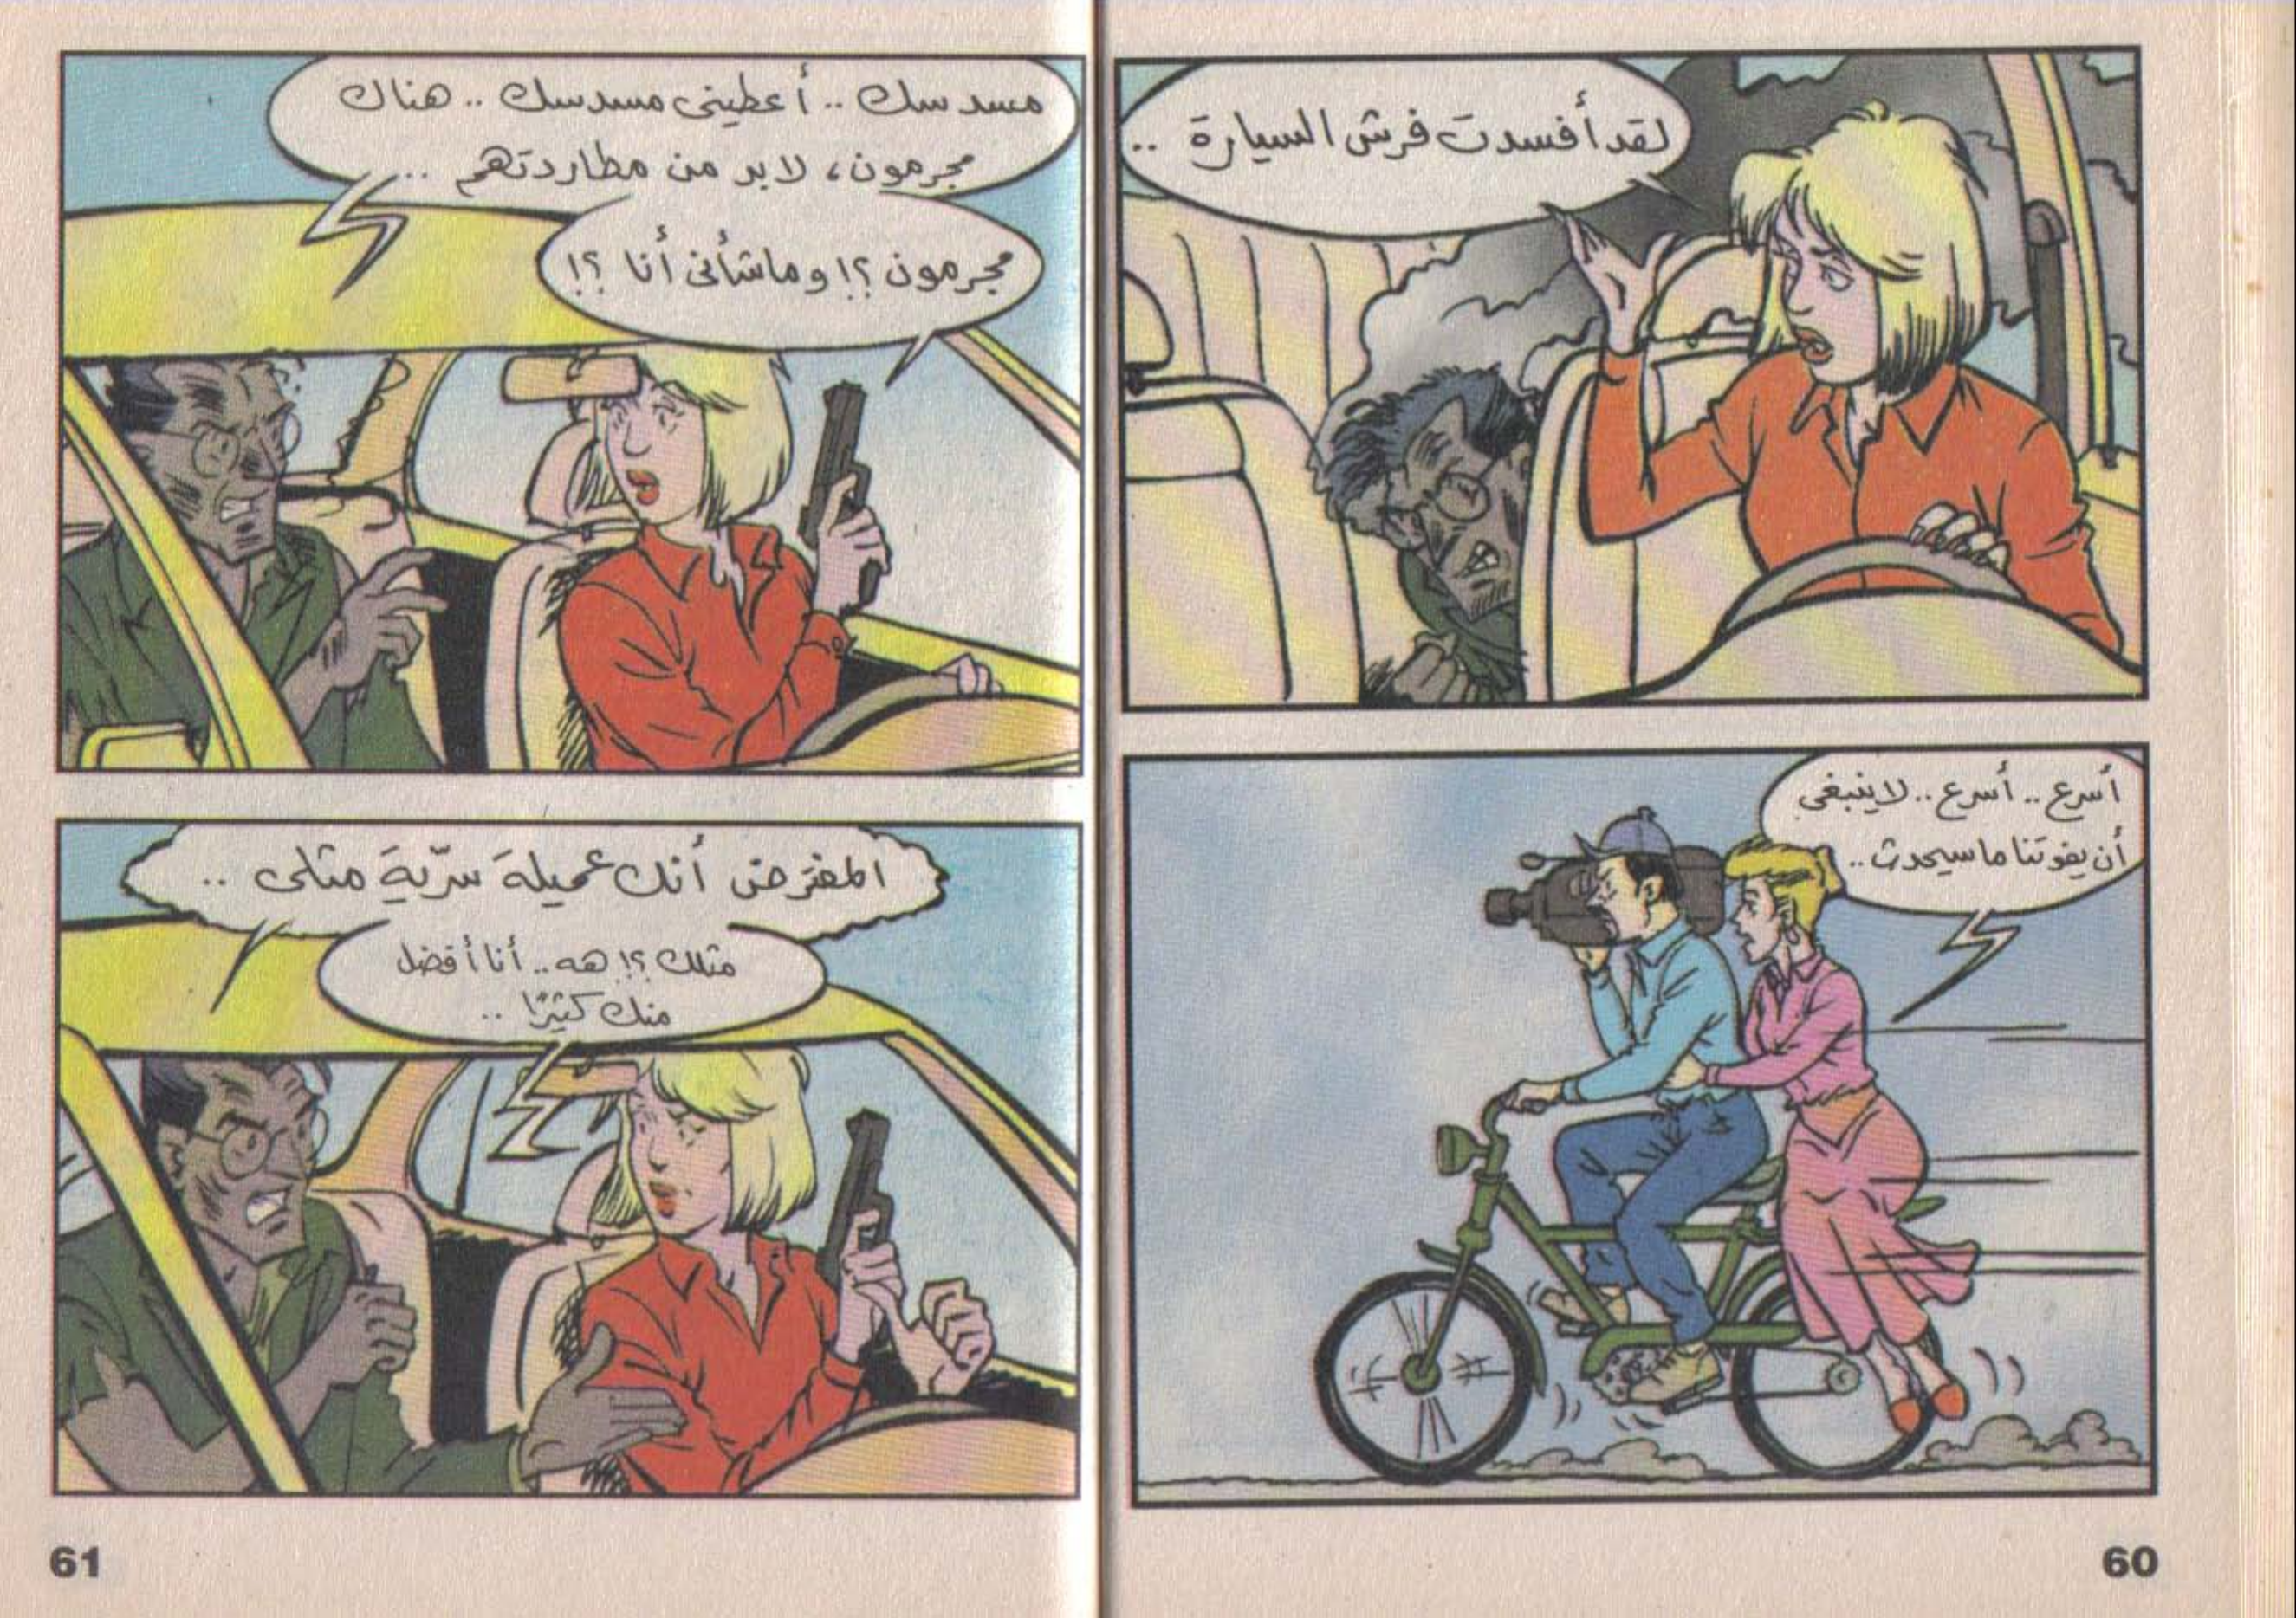 لقد أفسدت فرش السيارة ..
أسرع .. أسرع .. لا ينبغى
أن يفوتنا ما سيحدث ..
60
مسدسك .. أعطينى مسدسك .. هناك
مجرمون، لابد من مطاردتهم ...
مجرمون ؟! وما شأنى أنا ؟!
المفترض أنك عميلة سرّية مثلى ..
مثلك ؟! هه .. أنا أفضل
منك كثيرًا ..
61